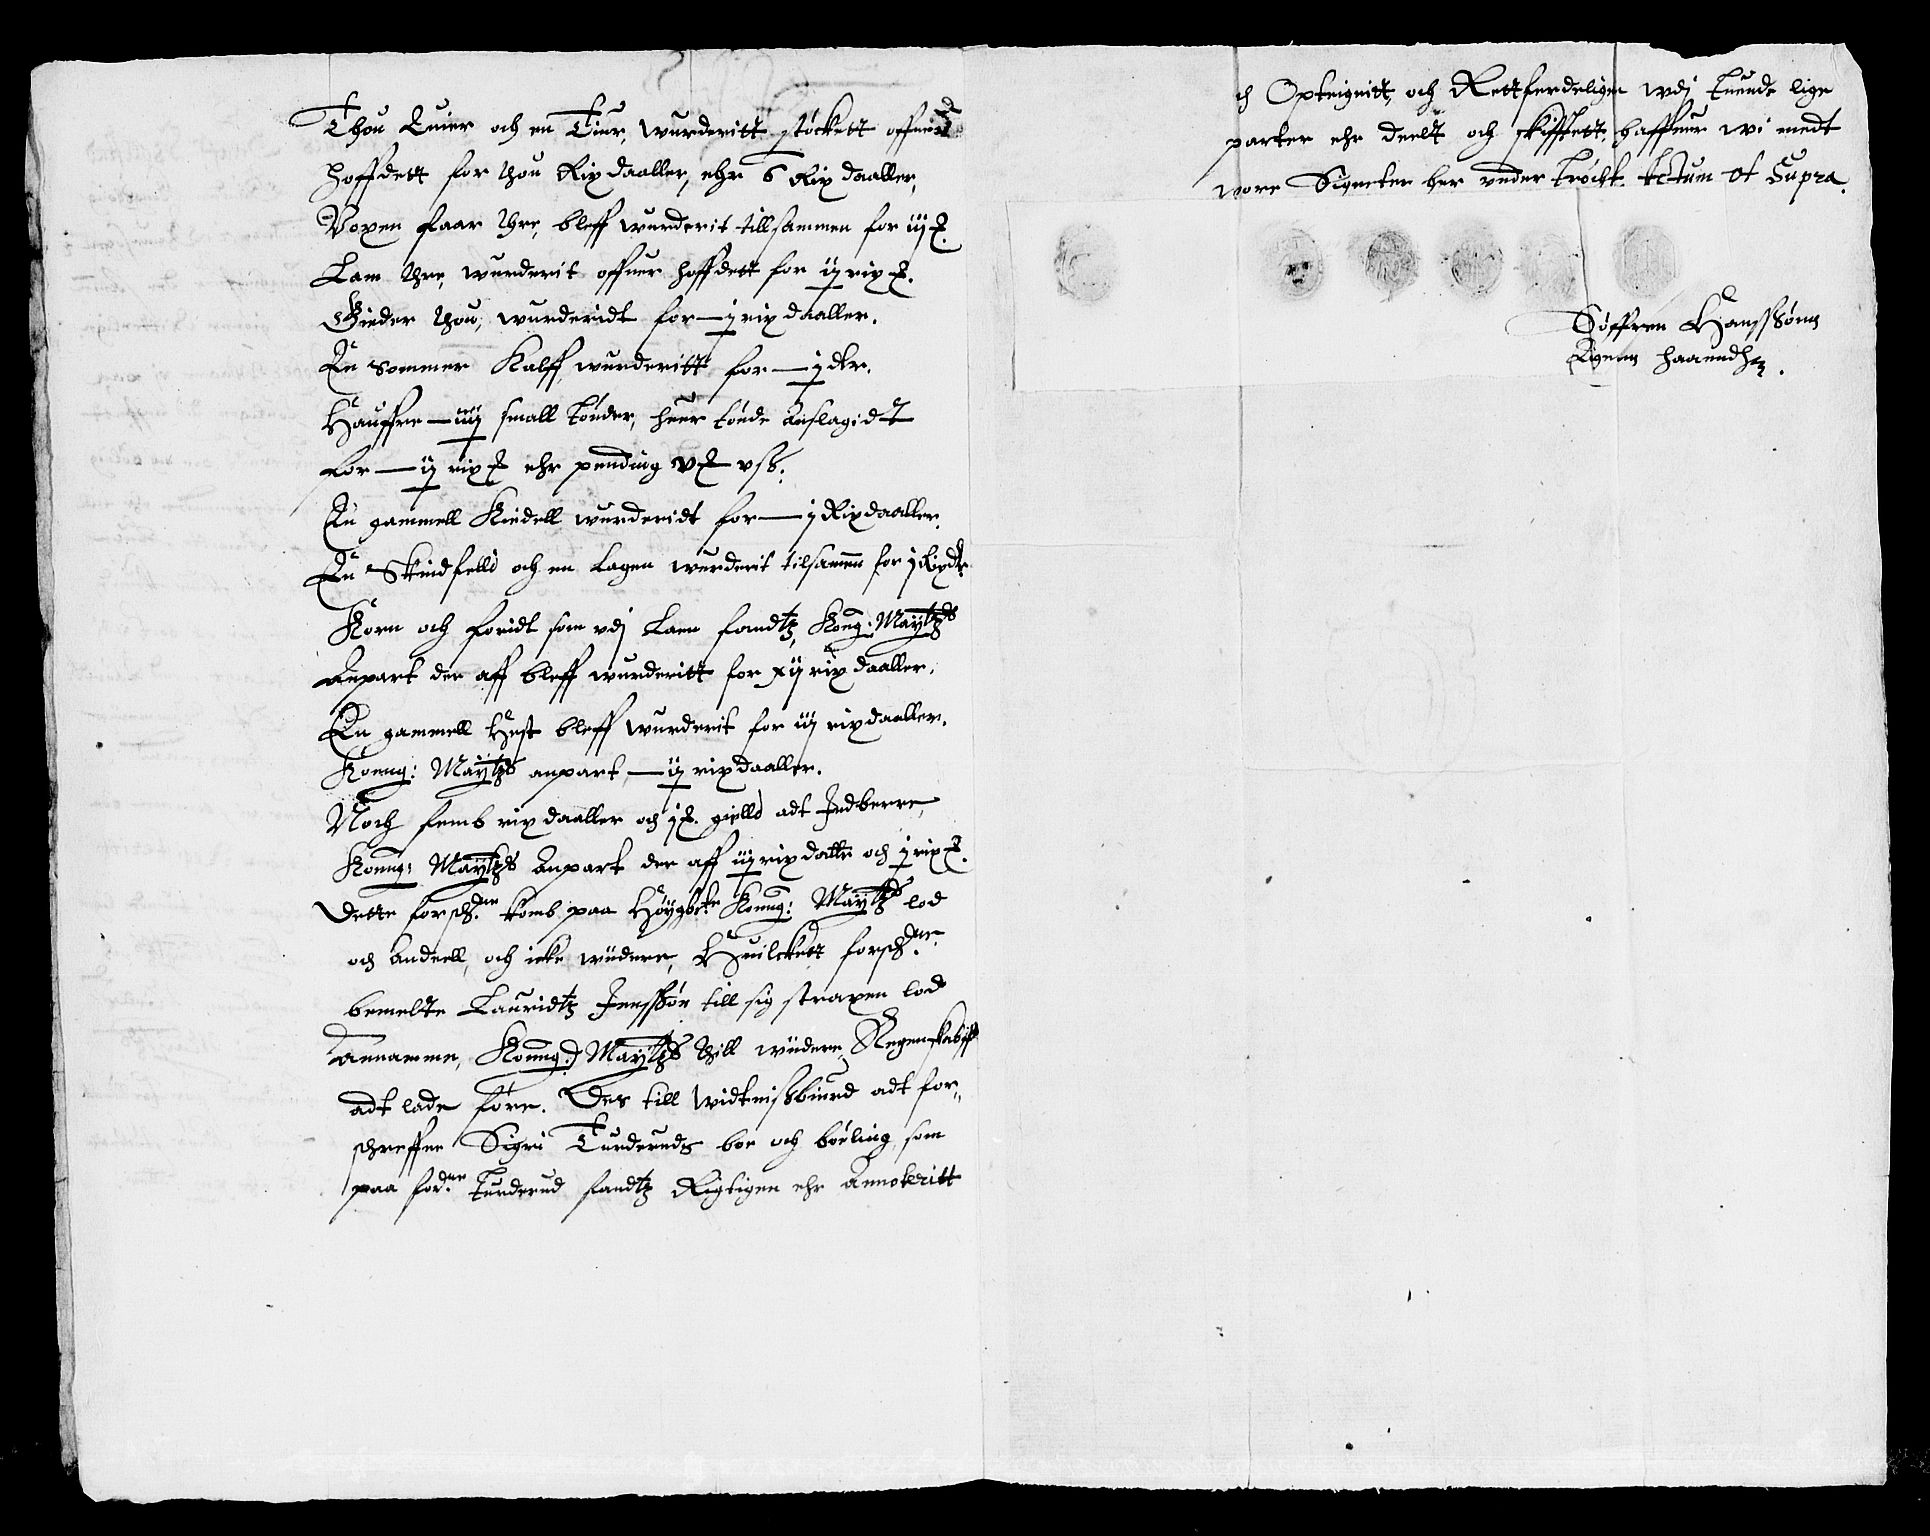 Thou Quier och en Tiur, wurderitt støckett offuerd
hoffdett for thou Rixdaaller, ehr 6 Rix daaller,
Voxen faar thre, bleff wurderit tillsammen for iij
Lam thre, wurderit offuer hoffdett for ij rix
Gieder thou, wurderidt for — j rix daaller.
En sommer Kalff wurderitt for — j dlr.
Hauffre — iiij small tønder, huer tønde Anslagidt
for — ij rix ehr pending
En gammell Kiedell wurderidt for — j Rixdaaller
En Skindfelld och en Lagen wurderit tilsamen for j Rixdlr
Korn och foridt som vdj Laen fandtz, Kong: Maÿtz
Anpart der aff bleff wurderitt for xij rix daaller.
En gammell Hest bleff wurderit for iij rixdaaller.
Konng: Maÿtz anpart, — ij rixdaaller.
Noch femb rixdaaller och j gielld adt Indberre,
Konng: Maÿtz Anpart der aff iij rixdallr och j rix
Dette forschne komb paa Høÿgbte Konng: Maÿtz lod
och Andeell, och icke wiidere, Huilckett forschne
bemelte Lauridtz Jenssøn till sig straxen lod
Annamme, Konng: Maÿtz thill wiidere Regenskabst
adt lade føre. Des till widtnissbiurd adt for„
schreffne Sigri Turderuds boe och bøeling som
paa fordne Turderud fandtz Rigtigen ehr Annoteritt
ch Opteignitt, och Rettferdeligen wdj tuende lige
parter ehr deelt och skifftett, haffuer wi medt
vore Signeter her vnder trøckt. Actum Vt Supra.
Søffren Hanssønn
Egenn haanndh